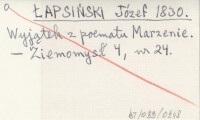 a
ŁAPSIŃSKI Józef 1830.
Wyjątek z poematu Marzenie.
— Ziemomysł 4, nr 24.